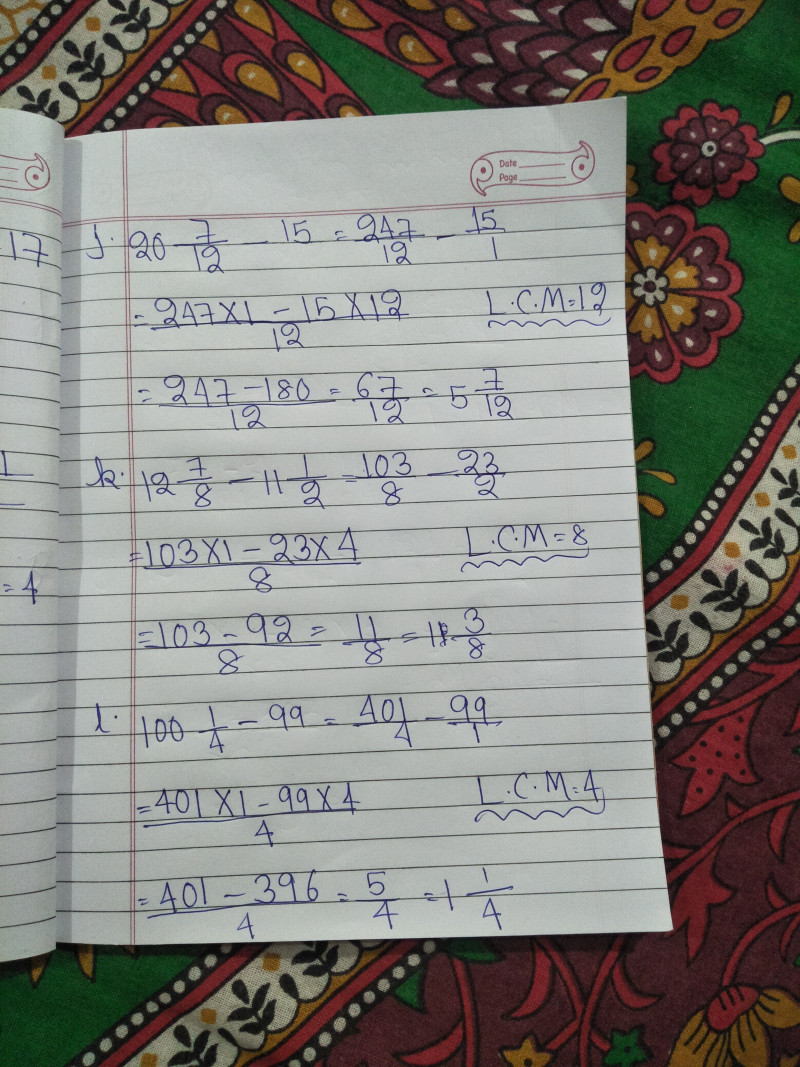 Date
Page
17
j. 20 7/12 - 15 = 247/12 - 15/1
= 247×1 - 15×12/12 L.C.M=12
= 247-180/12 = 67/12 = 5 7/12
k. 12 7/8 - 11 1/2 = 103/8 - 23/2
= 103×1 - 23×4/8 L.C.M=8
= 103 - 92/8 = 11/8 = 1 3/8
= 4
l. 100 1/4 - 99 = 401/4 - 99/1
= 401×1 - 99×4/4 L.C.M=4
= 401 - 396/4 = 5/4 = 1 1/4